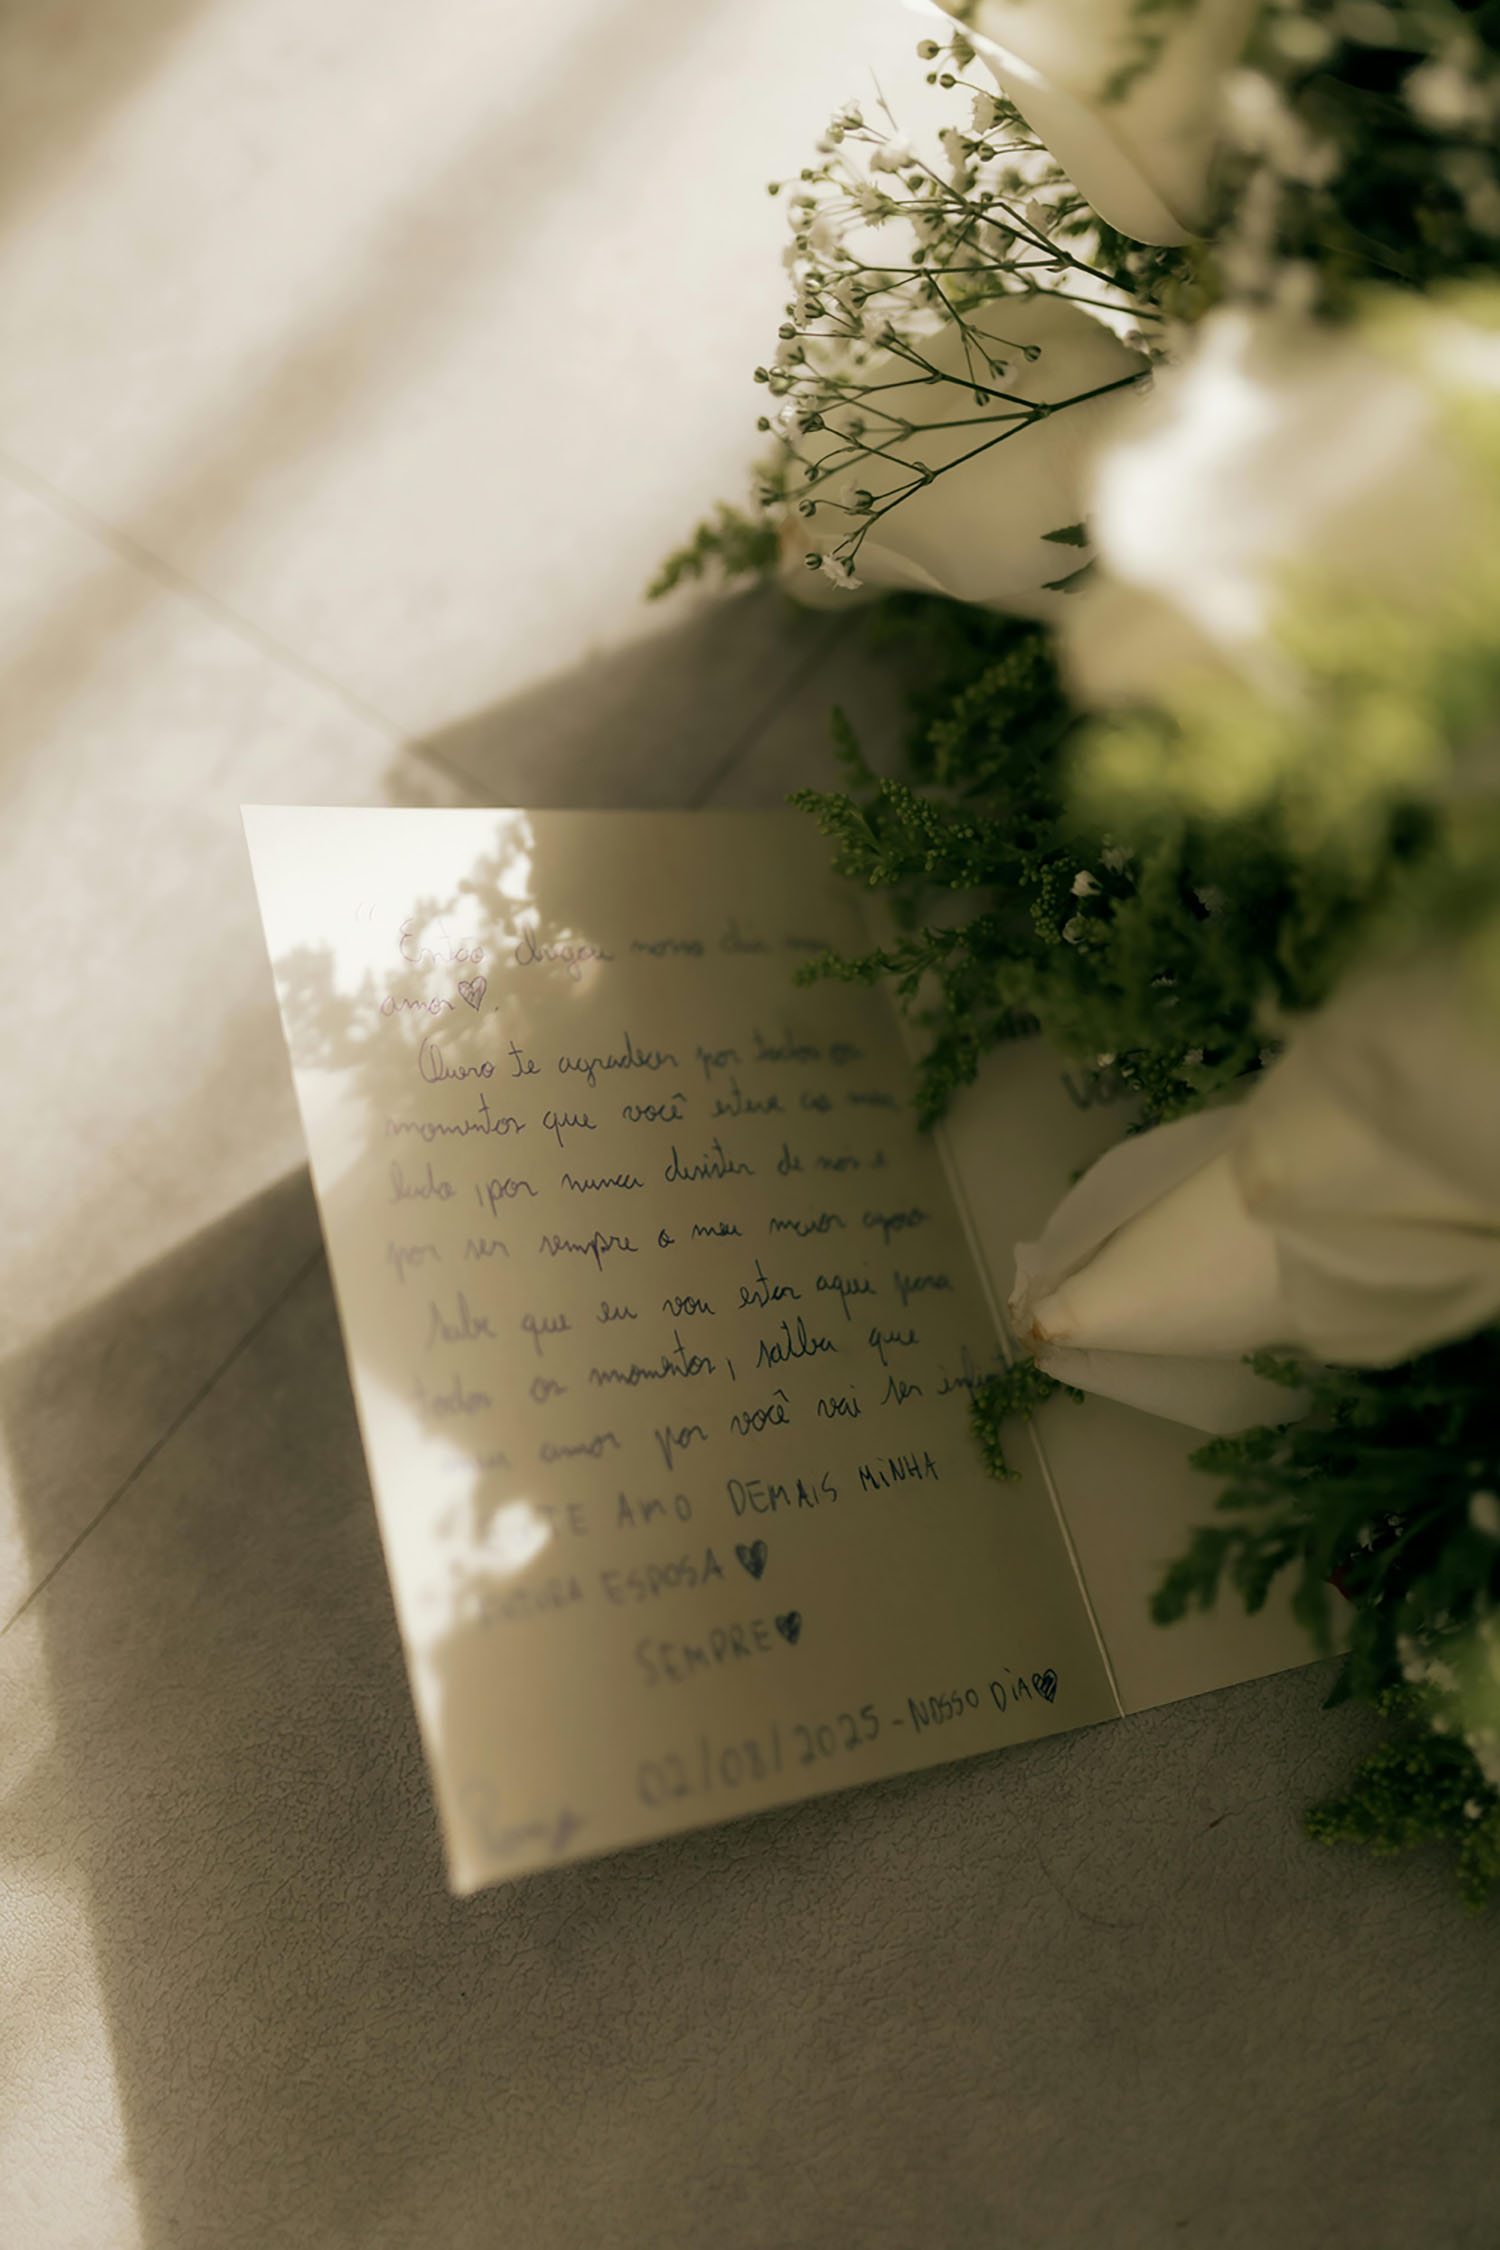 " Então chegou nosso dia meu
amor♥.
Quero te agradecer por todos os
momentos que você esteve ao meu
lado, por nunca desistir de nós e
por ser sempre o meu maior apoio
Sabe que eu vou estar aqui para
todos os momentos, saiba que
meu amor por você vai ser
TE AMO DEMAIS MINHA
FUTURA ESPOSA♥
SEMPRE♥
02/08/2025 - NOSSO DIA♥